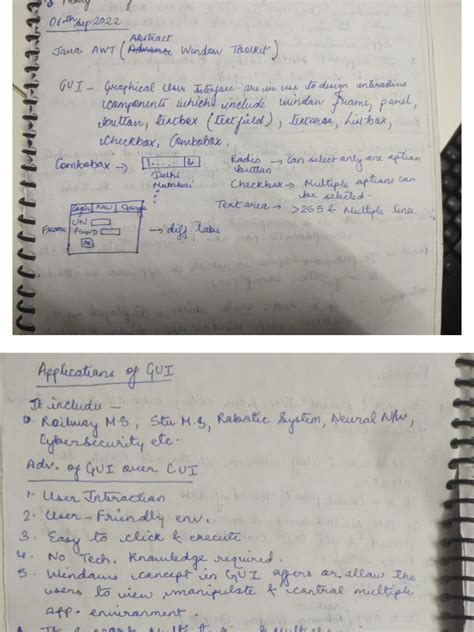 06th Sep 2022
Java AWT (Abstract Window Toolkit)
GUI - Graphical User Interface are in use to design interactive
components which include window frame, panel,
button, textbox (textfield), textarea, listbox,
checkbox, Combobox.
Combobox → 1..... Radio → can select only one option
Delhi button
Mumbai Checkbox → Multiple options can
be selected.
Text area → >255 & Multiple lines.
Login New Change
Frame UN
Pswd → diff tabs
OK
Applications of GUI
It include -
Railway M.S, Stu M.S, Robotic System, Neural N/w,
Cybersecurity etc.
Adv. of GUI over CUI
1. User Interaction
2. User-Friendly env.
3. Easy to click & execute
4. No Tech. Knowledge required.
5. Windows concept in GUI offers or allow the
users to view, manipulate & control multiple
app. environment.